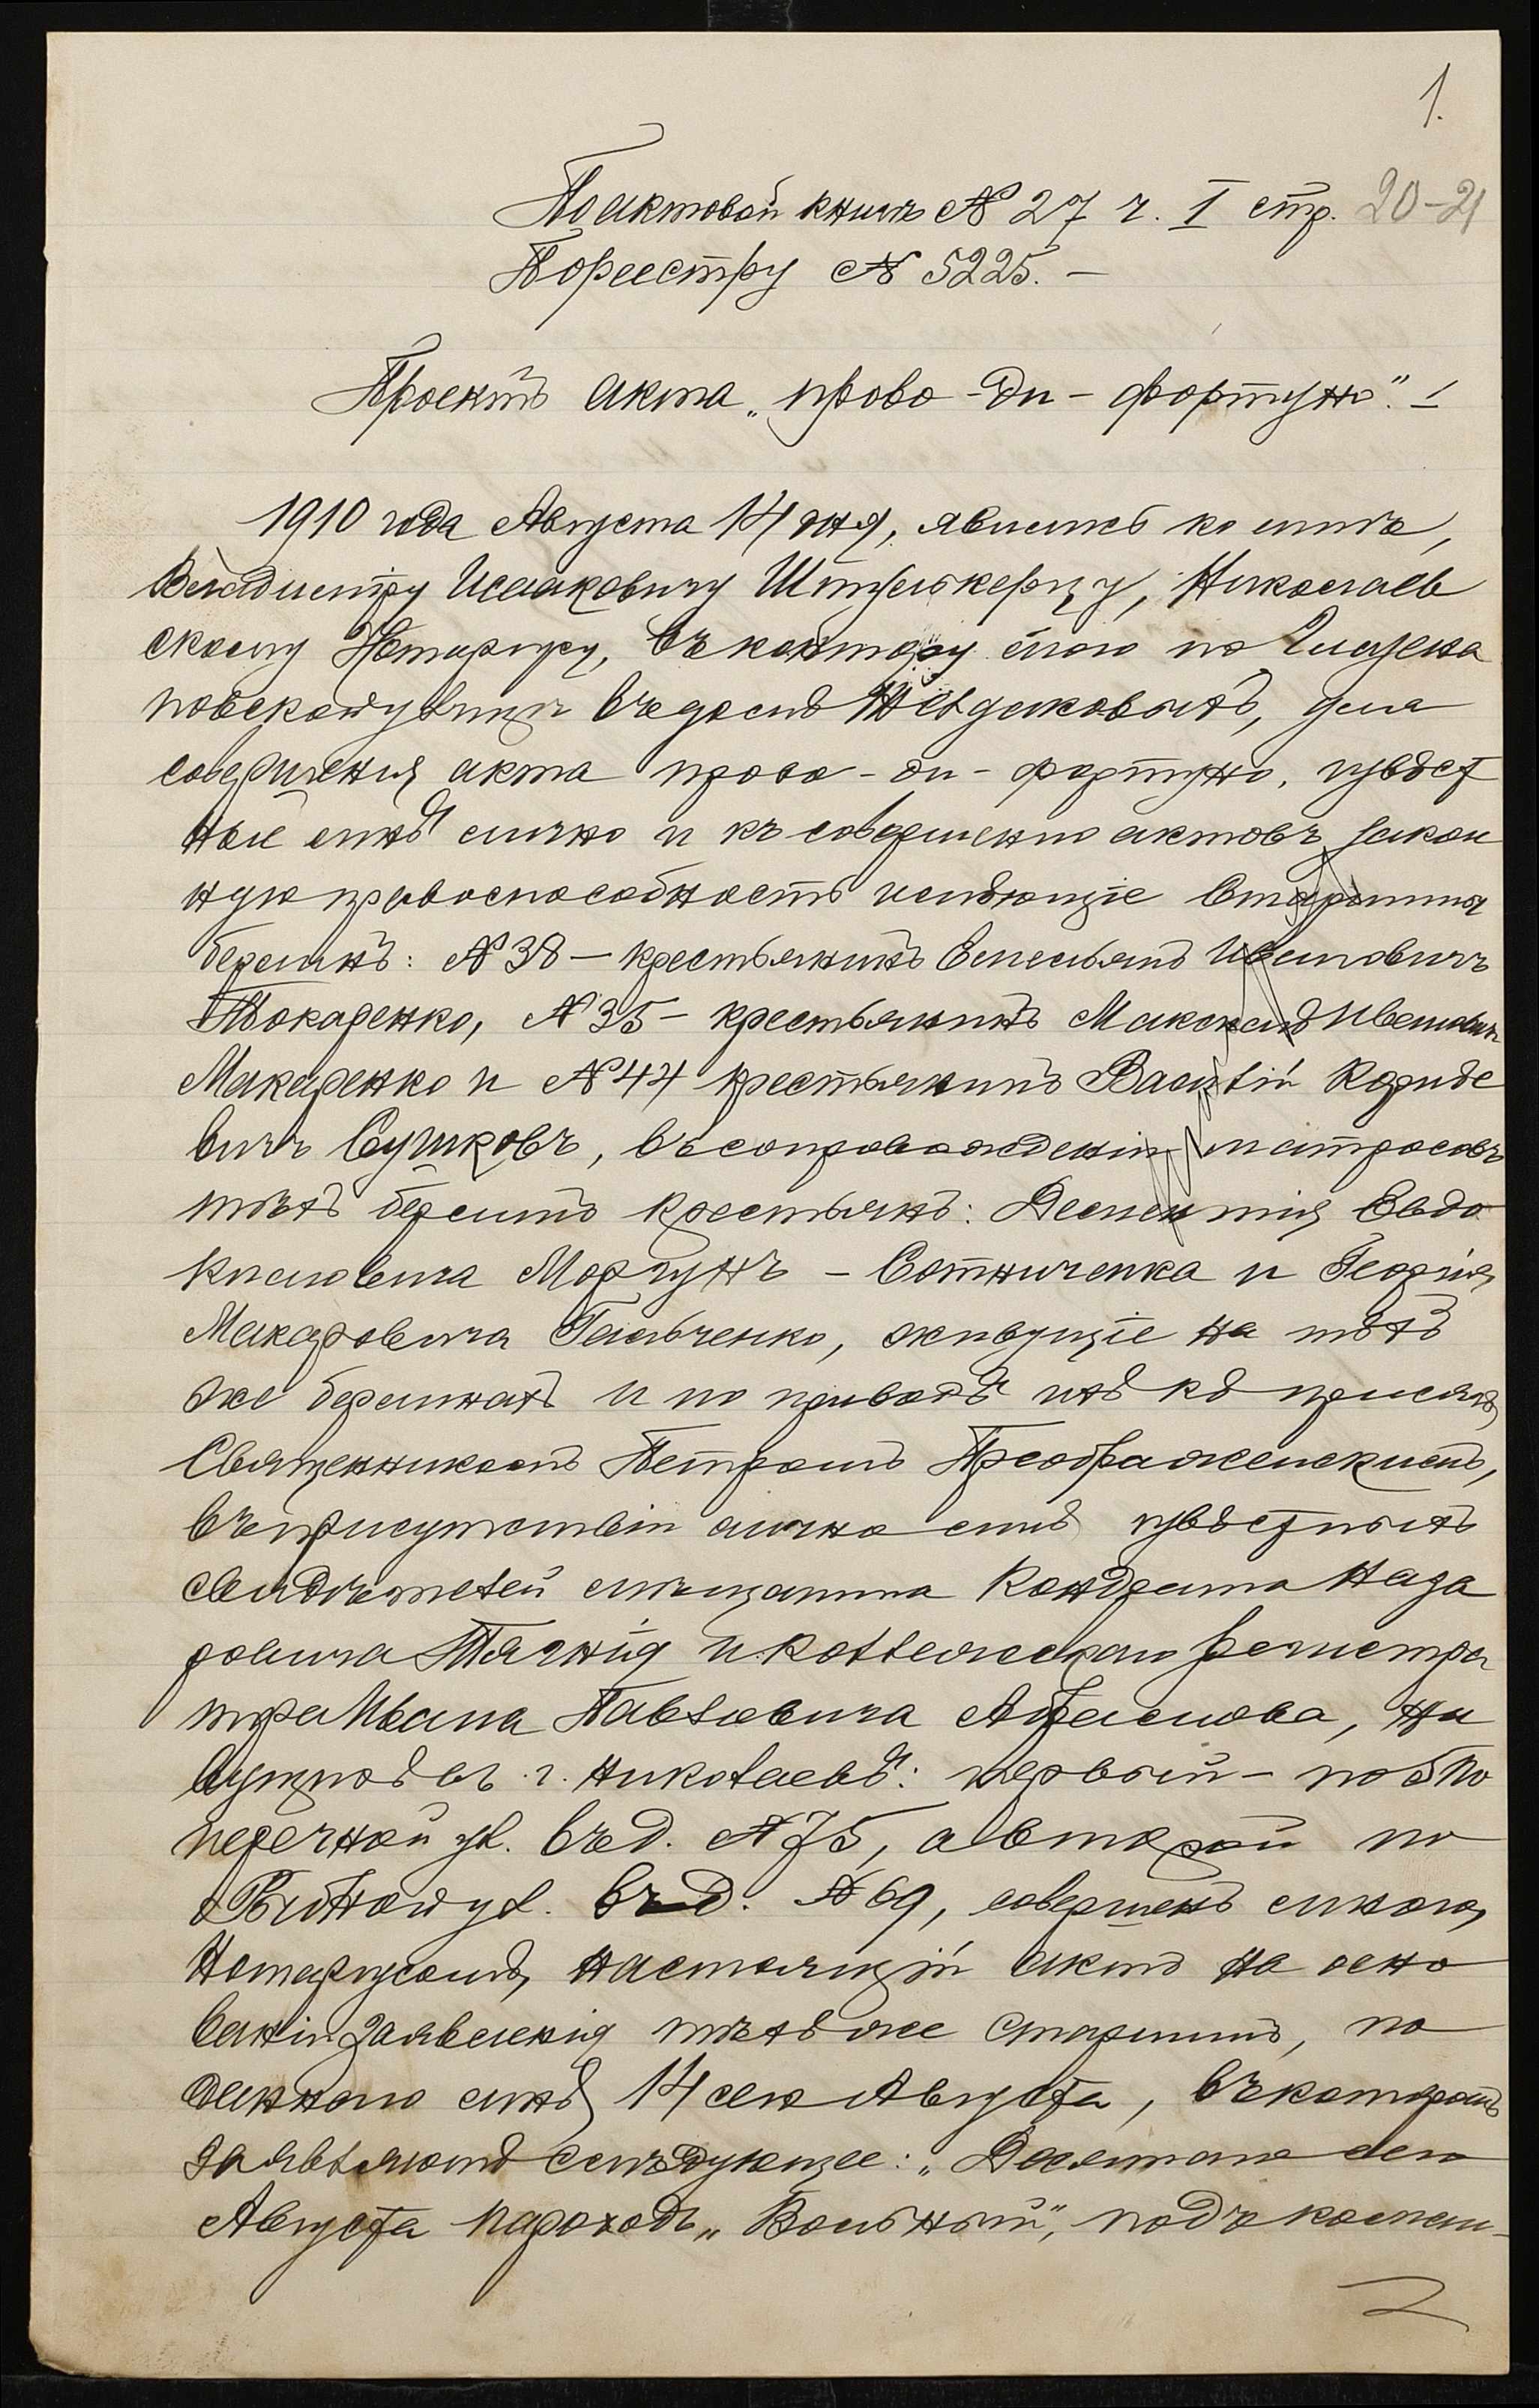 1.
По актовой книгѣ № 27 ч. I стр. 20-21
По реестру № 5225. —
Проектъ акта „прово-ди-фортуно“. I
1910 года Августа 14 дня, явились ко мнѣ,
Владиміру Исааковичу Штулькерцу, Николаев
скому Нотаріусу, въ контору мою по
повской улицѣ въ домѣ Недяковыхъ, для
совершенія акта прово-ди-фортуно, извѣст
ные мнѣ лично и къ совершенію актовъ закон
ную правоспособность имѣющіе Старшины
бершинъ: № 38 — крестьянинъ Емельянъ Ивановичъ
Токаренко, № 35 — крестьянинъ Максимъ Ивановичъ
Макаренко и № 44 крестьянинъ Василій
вичъ Сушковъ, въ сопровожденіи матросовъ
тѣхъ бершинъ крестьянъ: Дементія Евдо
кимовича Моргунъ — Сотниченка и Георгія
Макаровича Гальченко, живущіе на тѣхъ
же бершинахъ и по приводѣ ихъ къ присягѣ
Священникомъ Петромъ Преображенскимъ,
въ присутствіи лично мнѣ извѣстныхъ
свидѣтелей мѣщанина Кондрата Наза
ровича и коллежскаго регистра
тора Ивана Павловича Абрамова, жи
вущихъ въ г. Николаевѣ: первый — по 5 По
перечной ул. въ д. № 75, а второй по
Рыбной ул. въ д. № 69, совершенъ мною,
Нотаріусомъ, настоящій актъ на осно
ваніи заявленія тѣхъ же Старшинъ, по
даннаго мнѣ 14 сего Августа, въ которомъ
заявляютъ слѣдующее: „Десятаго сего
Августа пароходъ „Вольный“, подъ коман-
2